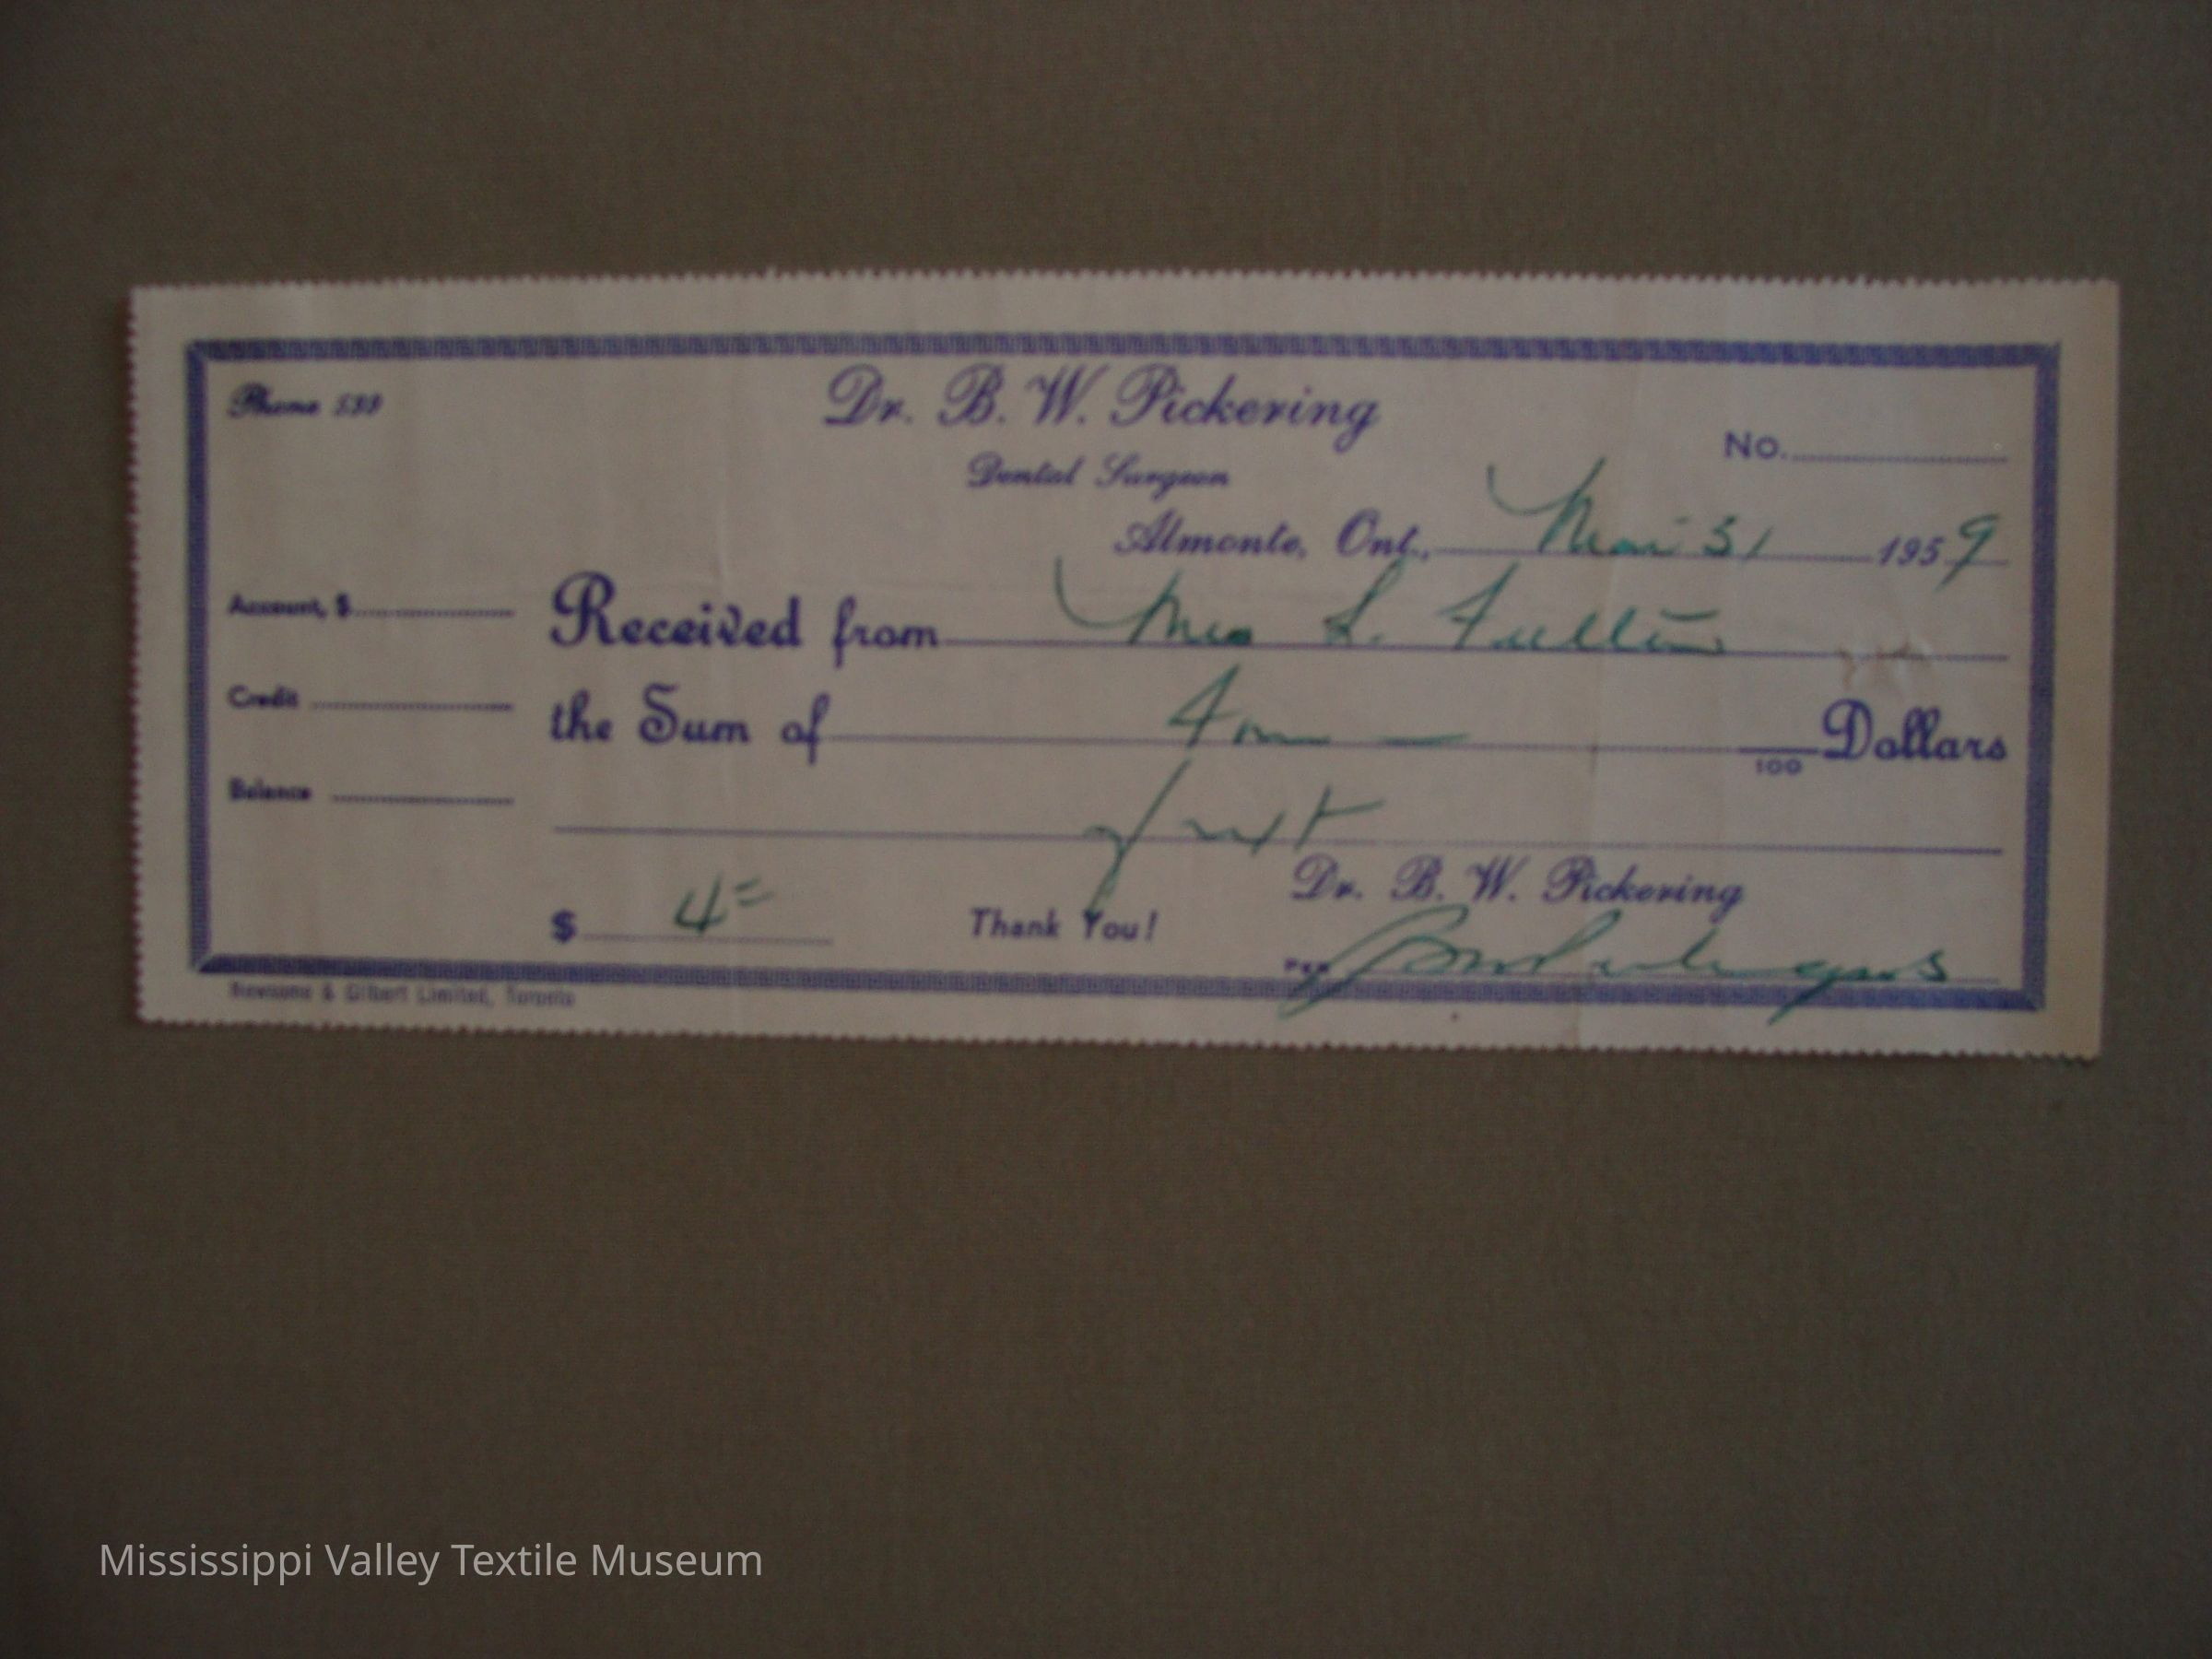 Phone 539
Dr. B. W. Pickering
Dental Surgeon
No.
Almonte, Ont., Mar 31 1959
Account, $
Received from Mrs L. Fulton
Credit
the Sum of Four — 100 Dollars
Balance
$ 4=
Thank You!
Dr. B. W. Pickering
Per
Newsome & Gilbert Limited, Toronto
Mississippi Valley Textile Museum